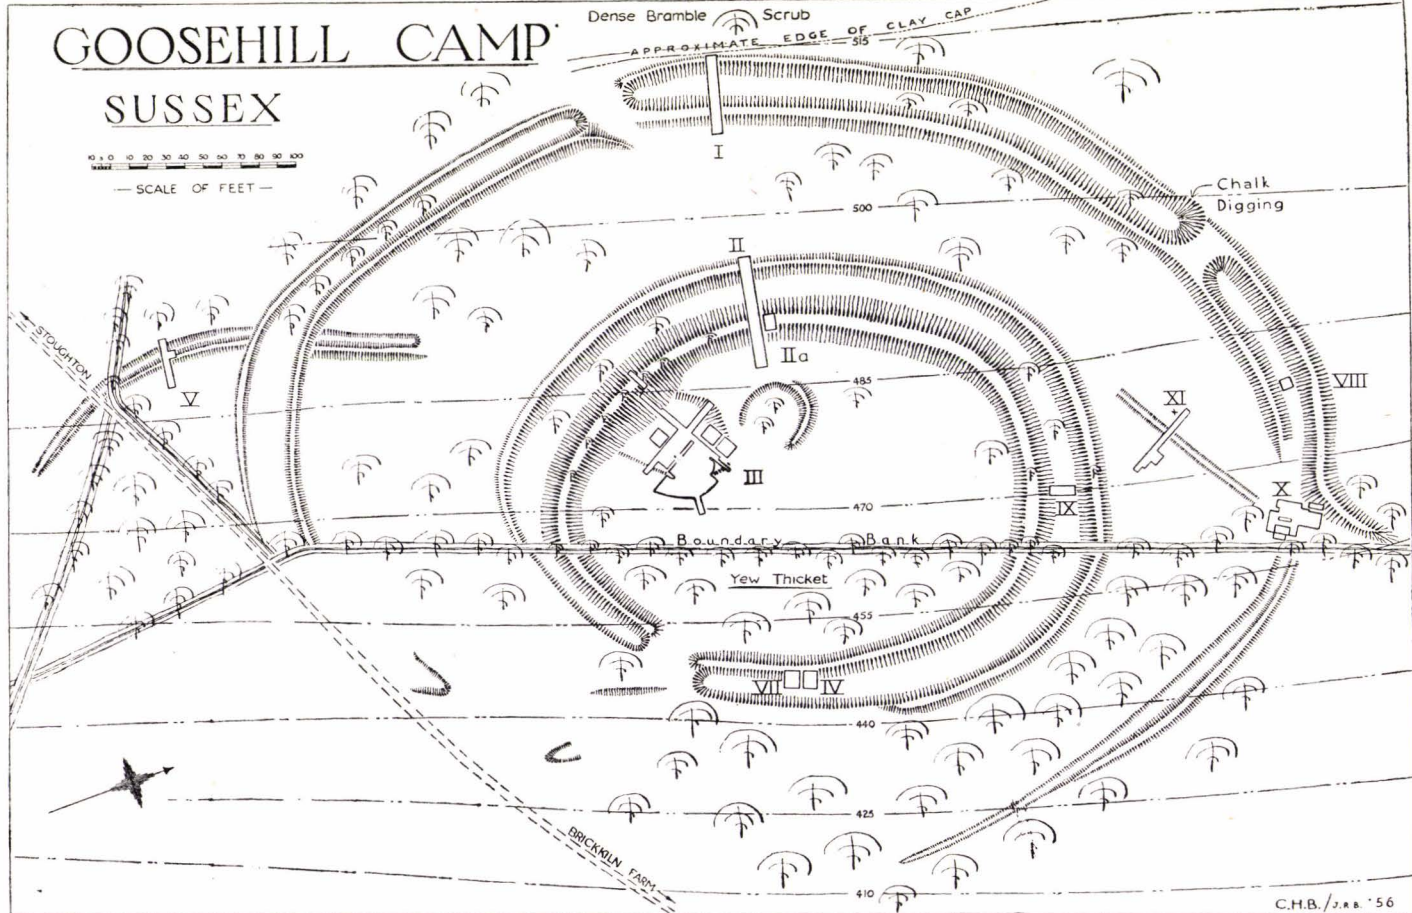 GOOSEHILL CAMP
SUSSEX
10 5 0 10 20 30 40 50 60 70 80 90 100
— SCALE OF FEET —
Dense Bramble Scrub
APPROXIMATE EDGE OF CLAY CAP
515
I
Chalk
Digging
500
II
IIa
STOUGHTON
V
485
VIII
XI
III
470
IX
X
Boundary Bank
Yew Thicket
455
VII IV
440
425
BRICKKILN FARM
410
C.H.B./J.R.B. '56